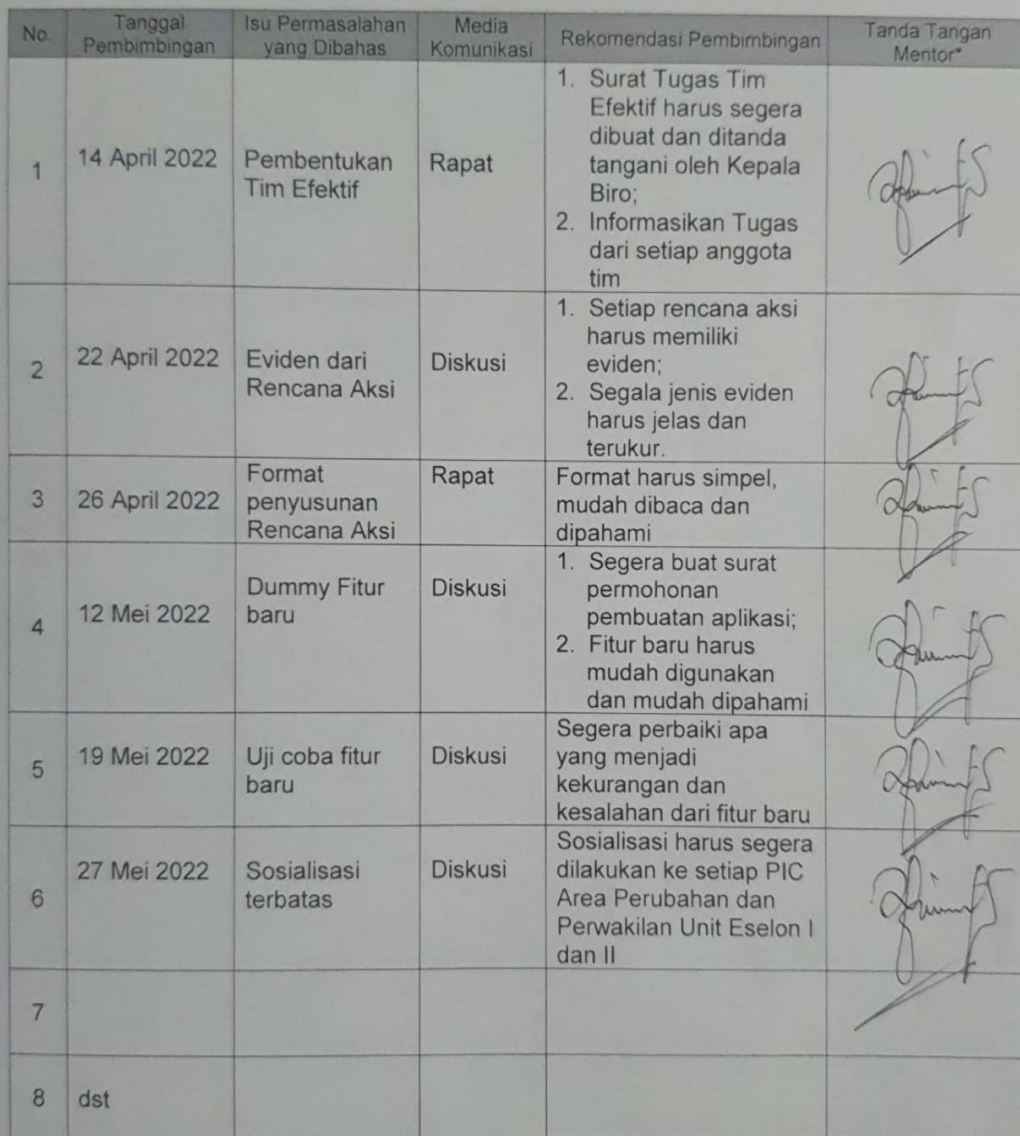 No.
Tanggal
Pembimbingan
Isu Permasalahan
yang Dibahas
Media
Komunikasi
Rekomendasi Pembimbingan
Tanda Tangan
Mentor*
1
14 April 2022
Pembentukan
Tim Efektif
Rapat
1. Surat Tugas Tim
Efektif harus segera
dibuat dan ditanda
tangani oleh Kepala
Biro;
2. Informasikan Tugas
dari setiap anggota
tim
2
22 April 2022
Eviden dari
Rencana Aksi
Diskusi
1. Setiap rencana aksi
harus memiliki
eviden;
2. Segala jenis eviden
harus jelas dan
terukur.
3
26 April 2022
Format
penyusunan
Rencana Aksi
Rapat
Format harus simpel,
mudah dibaca dan
dipahami
4
12 Mei 2022
Dummy Fitur
baru
Diskusi
1. Segera buat surat
permohonan
pembuatan aplikasi;
2. Fitur baru harus
mudah digunakan
dan mudah dipahami
5
19 Mei 2022
Uji coba fitur
baru
Diskusi
Segera perbaiki apa
yang menjadi
kekurangan dan
kesalahan dari fitur baru
6
27 Mei 2022
Sosialisasi
terbatas
Diskusi
Sosialisasi harus segera
dilakukan ke setiap PIC
Area Perubahan dan
Perwakilan Unit Eselon I
dan II
7
8
dst